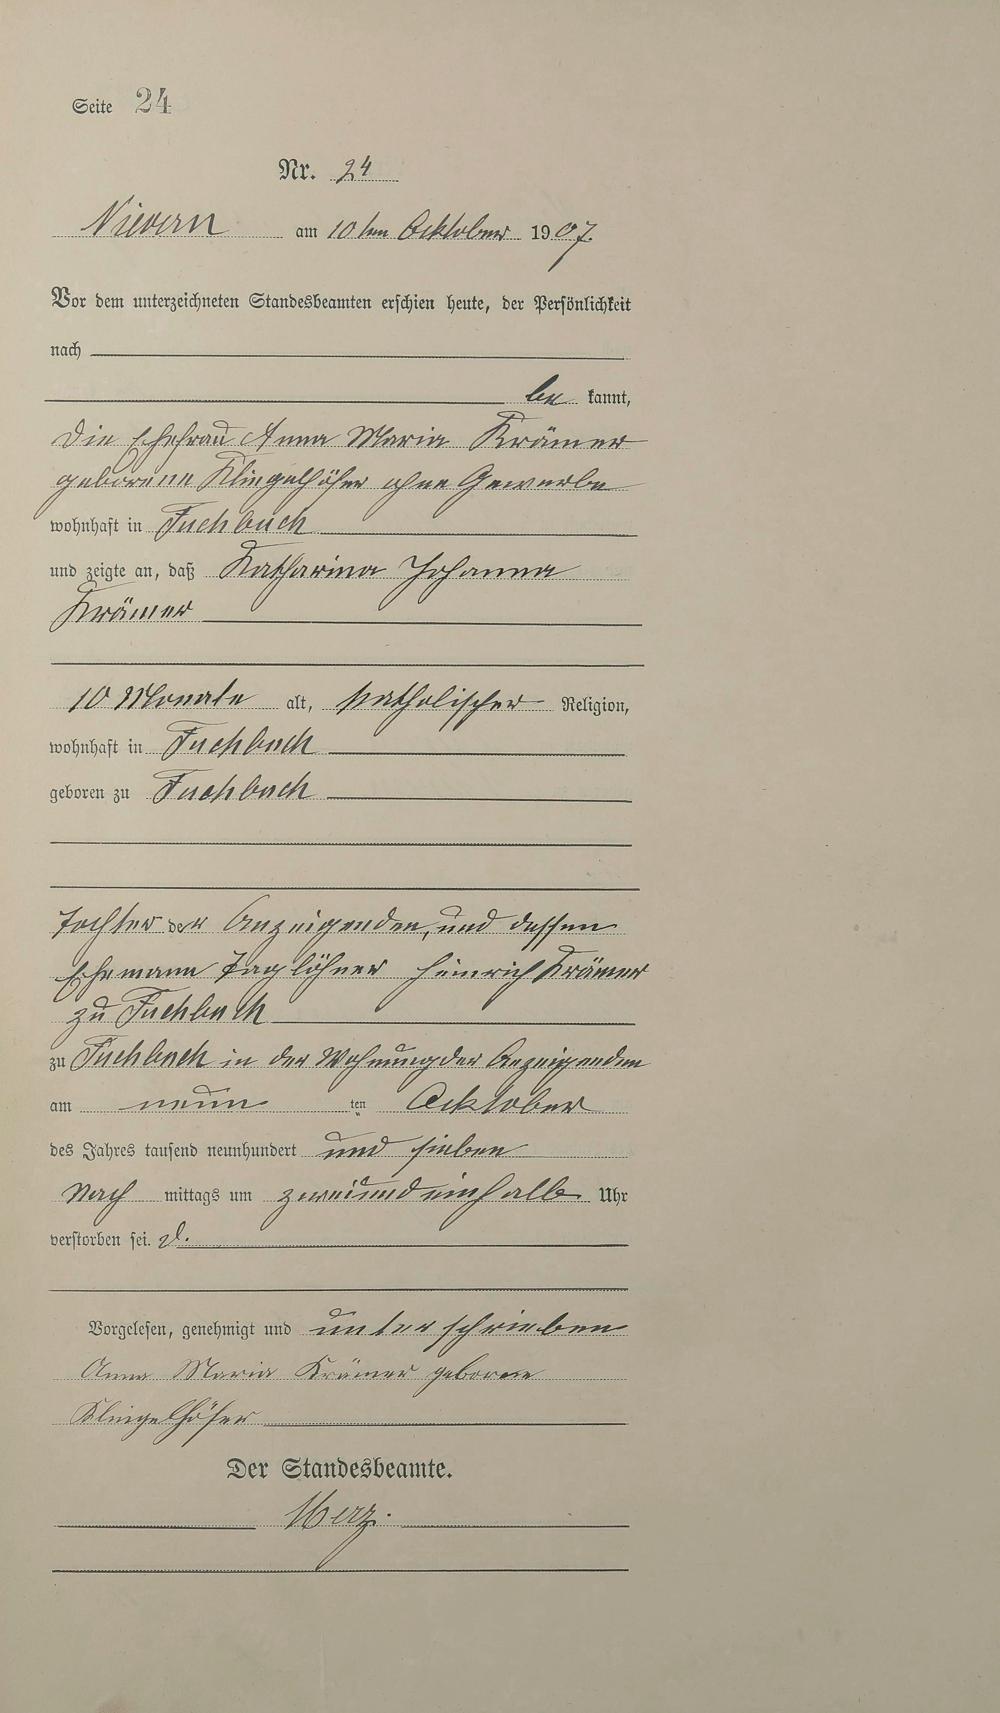 Seite 24
Nr. 24
Nievern am 10ten Ocktober 1907.
Vor dem unterzeichneten Standesbeamten erschien heute, der Persönlichkeit
nach
be kannt,
die Ehefrau Anna Maria Krämer
geborene Klingelhöfer ohne Gewerbe
wohnhaft in Fachbach
und zeigte an, daß Katharina Johanna
Krämer
10 Monate alt, katholischer Religion,
wohnhaft in Fachbach
geboren zu Fachbach
Tochter der Anzeigenden, und dessen
Ehemann Taglöhner Heinrich Krämer
zu Fachbach
zu Fachbach in der Wohnung der Anzeigenden
am neun ten Ocktober
des Jahres tausend neunhundert und sieben
Nach mittags um zweiundeinhalb Uhr
verstorben sei.
Vorgelesen, genehmigt und unterschrieben
Anna Maria Krämer geborene
Klingelhöfer
Der Standesbeamte.
Merz.